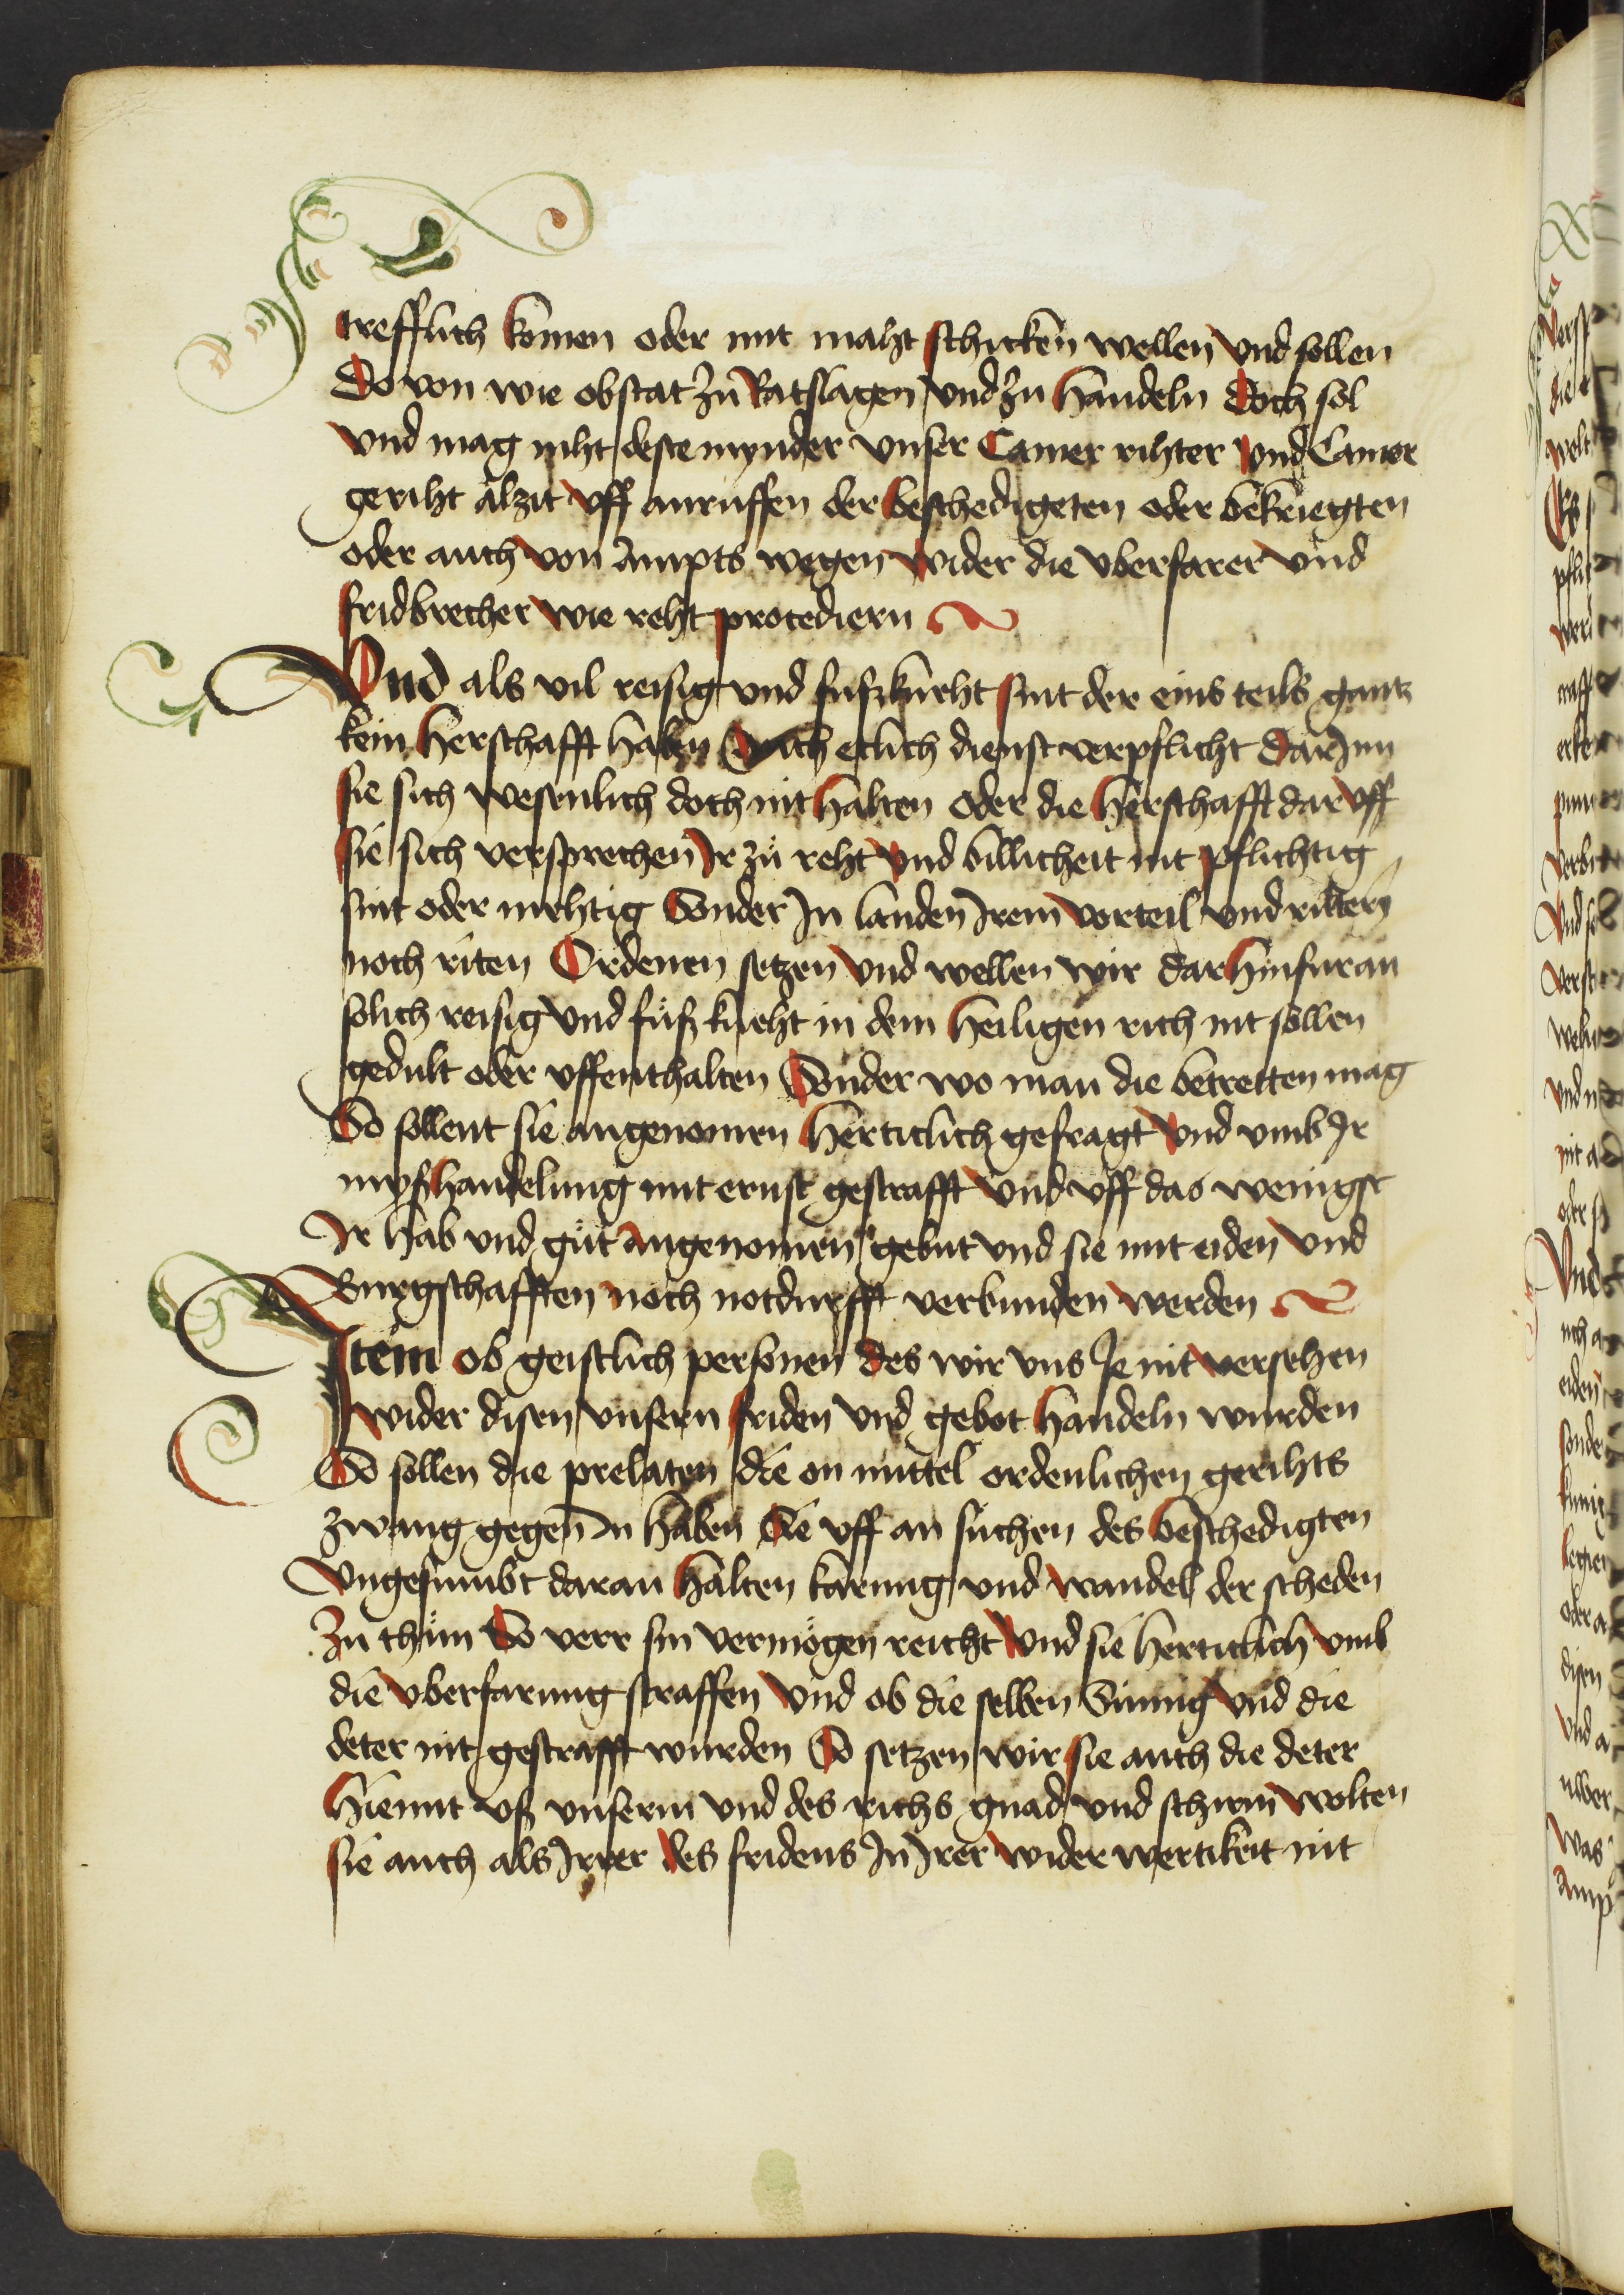 trefflich komen oder mit maht schicken wellen vnd sollen
Do von wie obstat zů Ratslagen vnd zů handeln Doch sol
vnd mag niht deste mynder vnser Camer rihter vnd Camer
geriht alzit vff anruffen der beschedigeten oder bekriegten
oder auch von Ampts wegen wider die vberfarer vnd
fridbrecher wie reht procediern
Vnd als vil reisig vnd fußkneht sint der eins teils gantz
kein herschafft haben Auch etlich dienst verpflicht dar Inn
sie sich wesenlich doch nit halten oder die herschafft dar vff
sie sich versprechen Ir zů reht vnd billicheit nit pflichtig
sint oder mehtig Sonder In landen Irem vorteil vnd rittery
noch riten Ordenen setzen vnd wellen wir dar hinfuran
solich reisig vnd fůßkneht in dem heiligen rich nit sollen
gedult oder vffenthalten Sonder wo man die betretten mag
So sollent sie angenomen herticlich gefragt vnd vmb Ir
myßhandelung mit ernst gestrafft vnd vff das wenigst
Ir hab vnd gůt angenomen gebut vnd sie mit eiden vnd
Burgschafften noch notdurfft verbunden werden
Item ob geistlich personen des wir vns Ie nit versehen
wider disen vnsern friden vnd gebot handeln wurden
So sollen die prelaten die on mittel ordenlichen gerihts
zwang gegen In haben Sie vff an suchen des beschedigten
Vngesumbt daran halten karung vnd wandel der scheden
Zu thůn So verr sin vermögen reicht vnd sie herticlich vmb
die vberfarung straffen Vnd ob die selben Sinnig vnd die
deter nit gestrafft wurden So setzen wir sie auch die deter
hiemit vß vnserm vnd des richs gnad vnd schirm wolten
sie auch als Irrer des fridens In Irer wider wertikeit nit